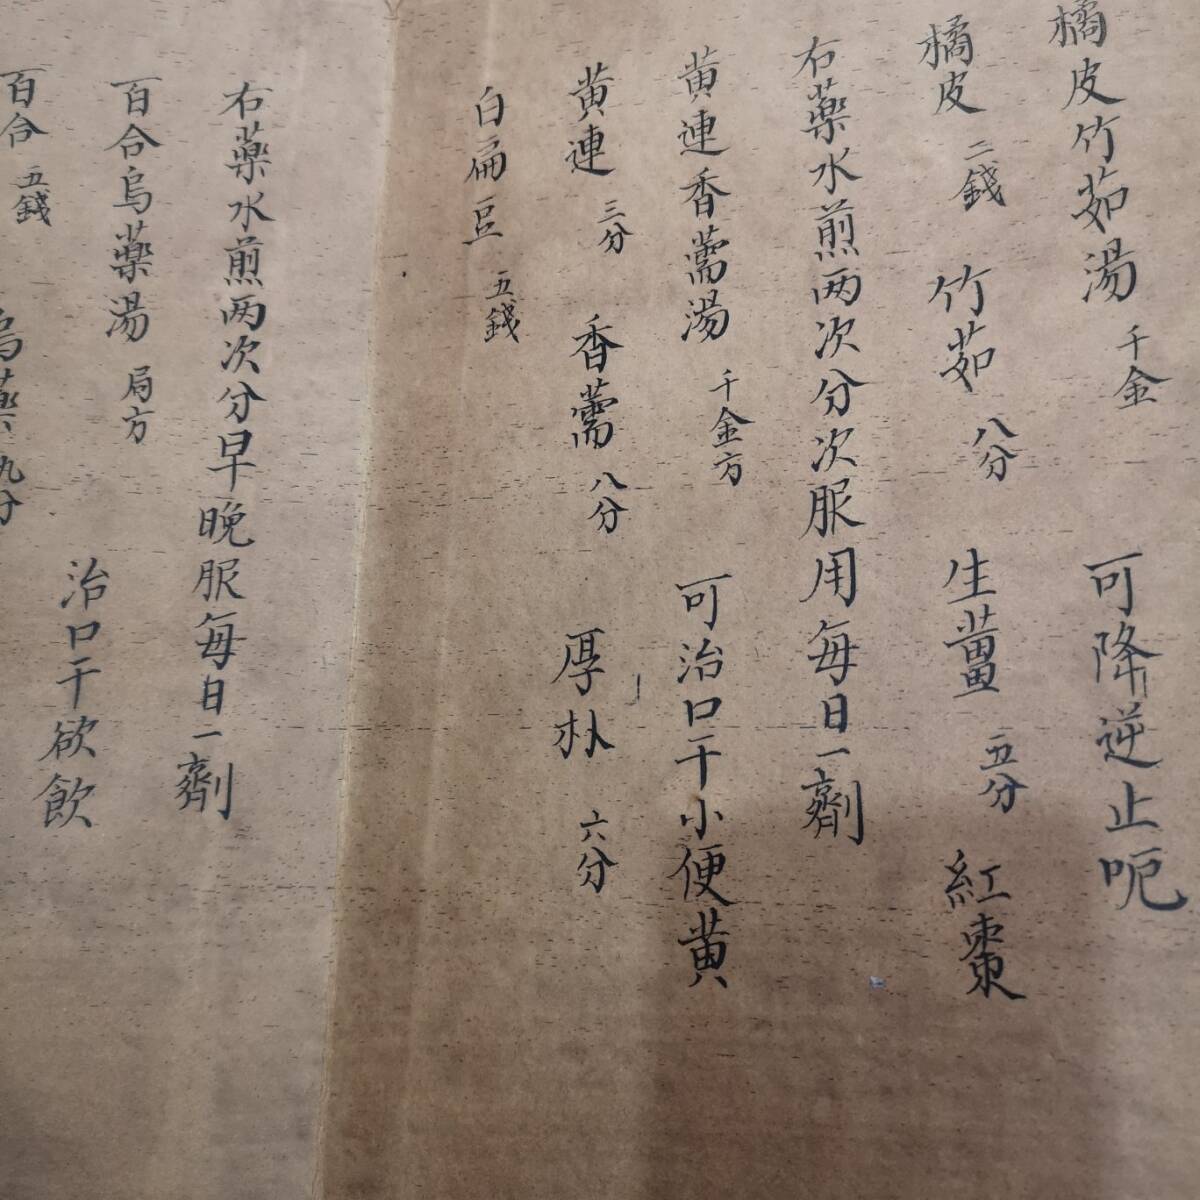 橘皮竹茹湯 千金 可降逆止呃
橘皮 二錢 竹茹 八分 生薑 五分 紅棗
右藥水煎两次分次服用每日一劑
黄連香薷湯 千金方 可治口干小便黄
黄連 三分 香薷 八分 厚朴 六分
白扁豆 五錢
右藥水煎两次分早晚服每日一劑
百合烏藥湯 局方 治口干欲飲
百合 五錢 烏藥 九分